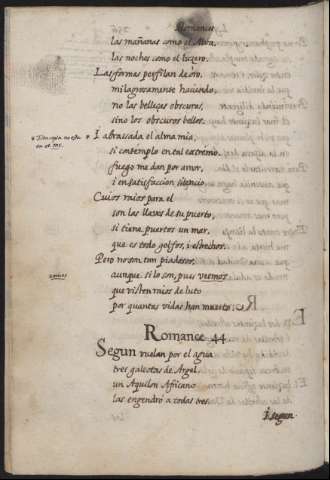 Romances
las mañanas como el Alva,
las noches como el luzero.
Las formas perfilan de oro,
milagrosamente haziendo,
no las bellezas obscuras,
sino los obscuros bellos.
I abrasada el alma mia,
si contemplo en tal extremo
fuego me dan por amor,
i en satisfaccion silencio.
Cuios raios para el
son las llaves de su puerto,
si tiene puertos un mar,
que es todo golfos, i estrechos.
Pero no son tan piadosos,
aunque si lo son, pues vemos
que visten raios de luto
por quantas vidas han muerto.
Romance 44
Segun vuelan por el agua
tres galeotas de Argel,
un Aquilon Africano
las engendró a todas tres.
I segun